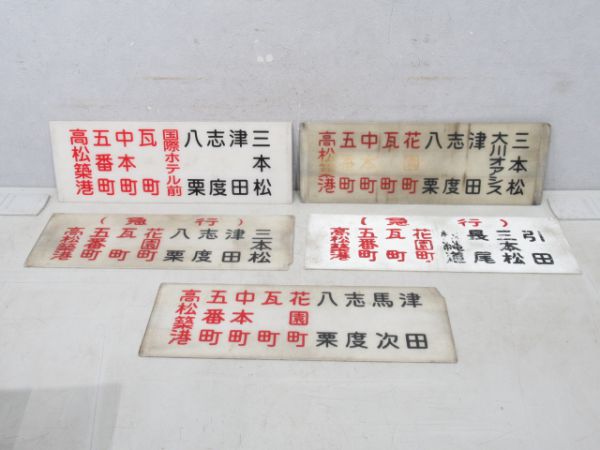 三本松
津田
志度
八栗
国際ホテル前
瓦町
中本町
五番町
高松築港
三本松
大川オアシス
津田
志度
八栗
花園町
瓦町
中本町
五番町
高松築港
(急行)
三本松
津田
志度
八栗
瓦町
五番町
高松築港
(急行)
引田
三本松
長尾
花園町
瓦町
五番町
高松築港
津田
馬次
志度
八栗
花園町
瓦町
中本町
五番町
高松築港